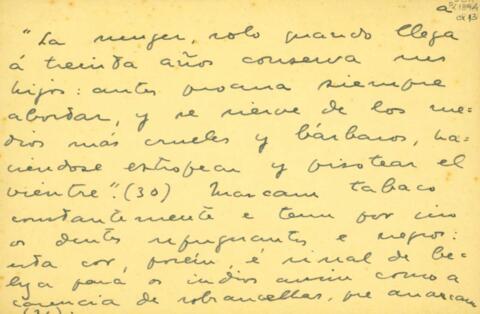 a
"La muger, solo quando llega
á treinta años conserva sus
hijos: antes procura siempre
abortar, y se sierve de los me-
dios más crueles y bárbaros, ha-
ciendose estropear y pisotear el
vientre". (30) Mascam tabaco
constantemente e tem por isso
os dentes repugnantes e negros:
esta cor, porém, é sinal de be-
leza para os indios assim como a
carencia de sobrancelhas, que arrancam
(31).